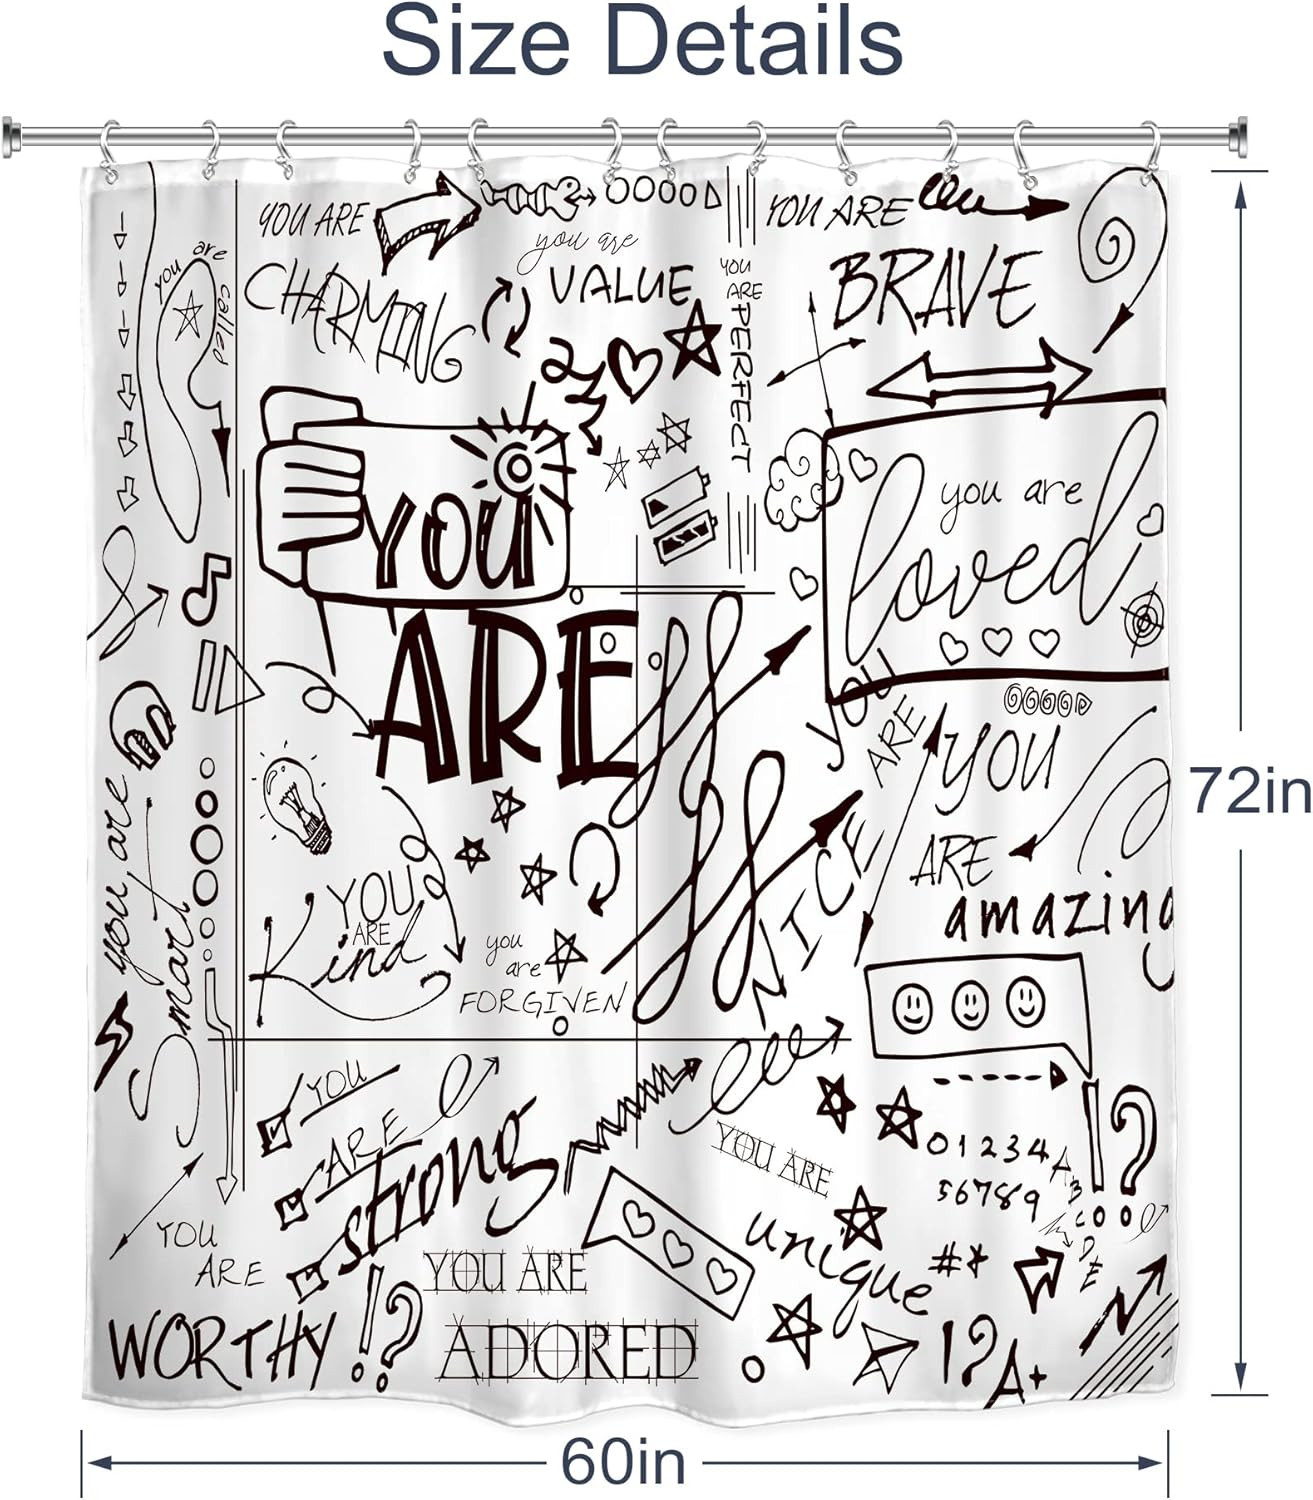 Size Details
YOU ARE
CHARMING
you are
VALUE
YOU
ARE
PERFECT
YOU ARE
BRAVE
you are
called
YOU
ARE
you are
loved
YOU
ARE
NICE
YOU
ARE
amazing
you are
Smart
YOU
ARE
Kind
you
are
FORGIVEN
YOU
ARE
strong
YOU ARE
unique
0 1 2 3 4
5 6 7 8 9
A
B
C
D
E
!?
YOU
ARE
WORTHY
!?
YOU ARE
ADORED
#*
!?
A+
72in
60in